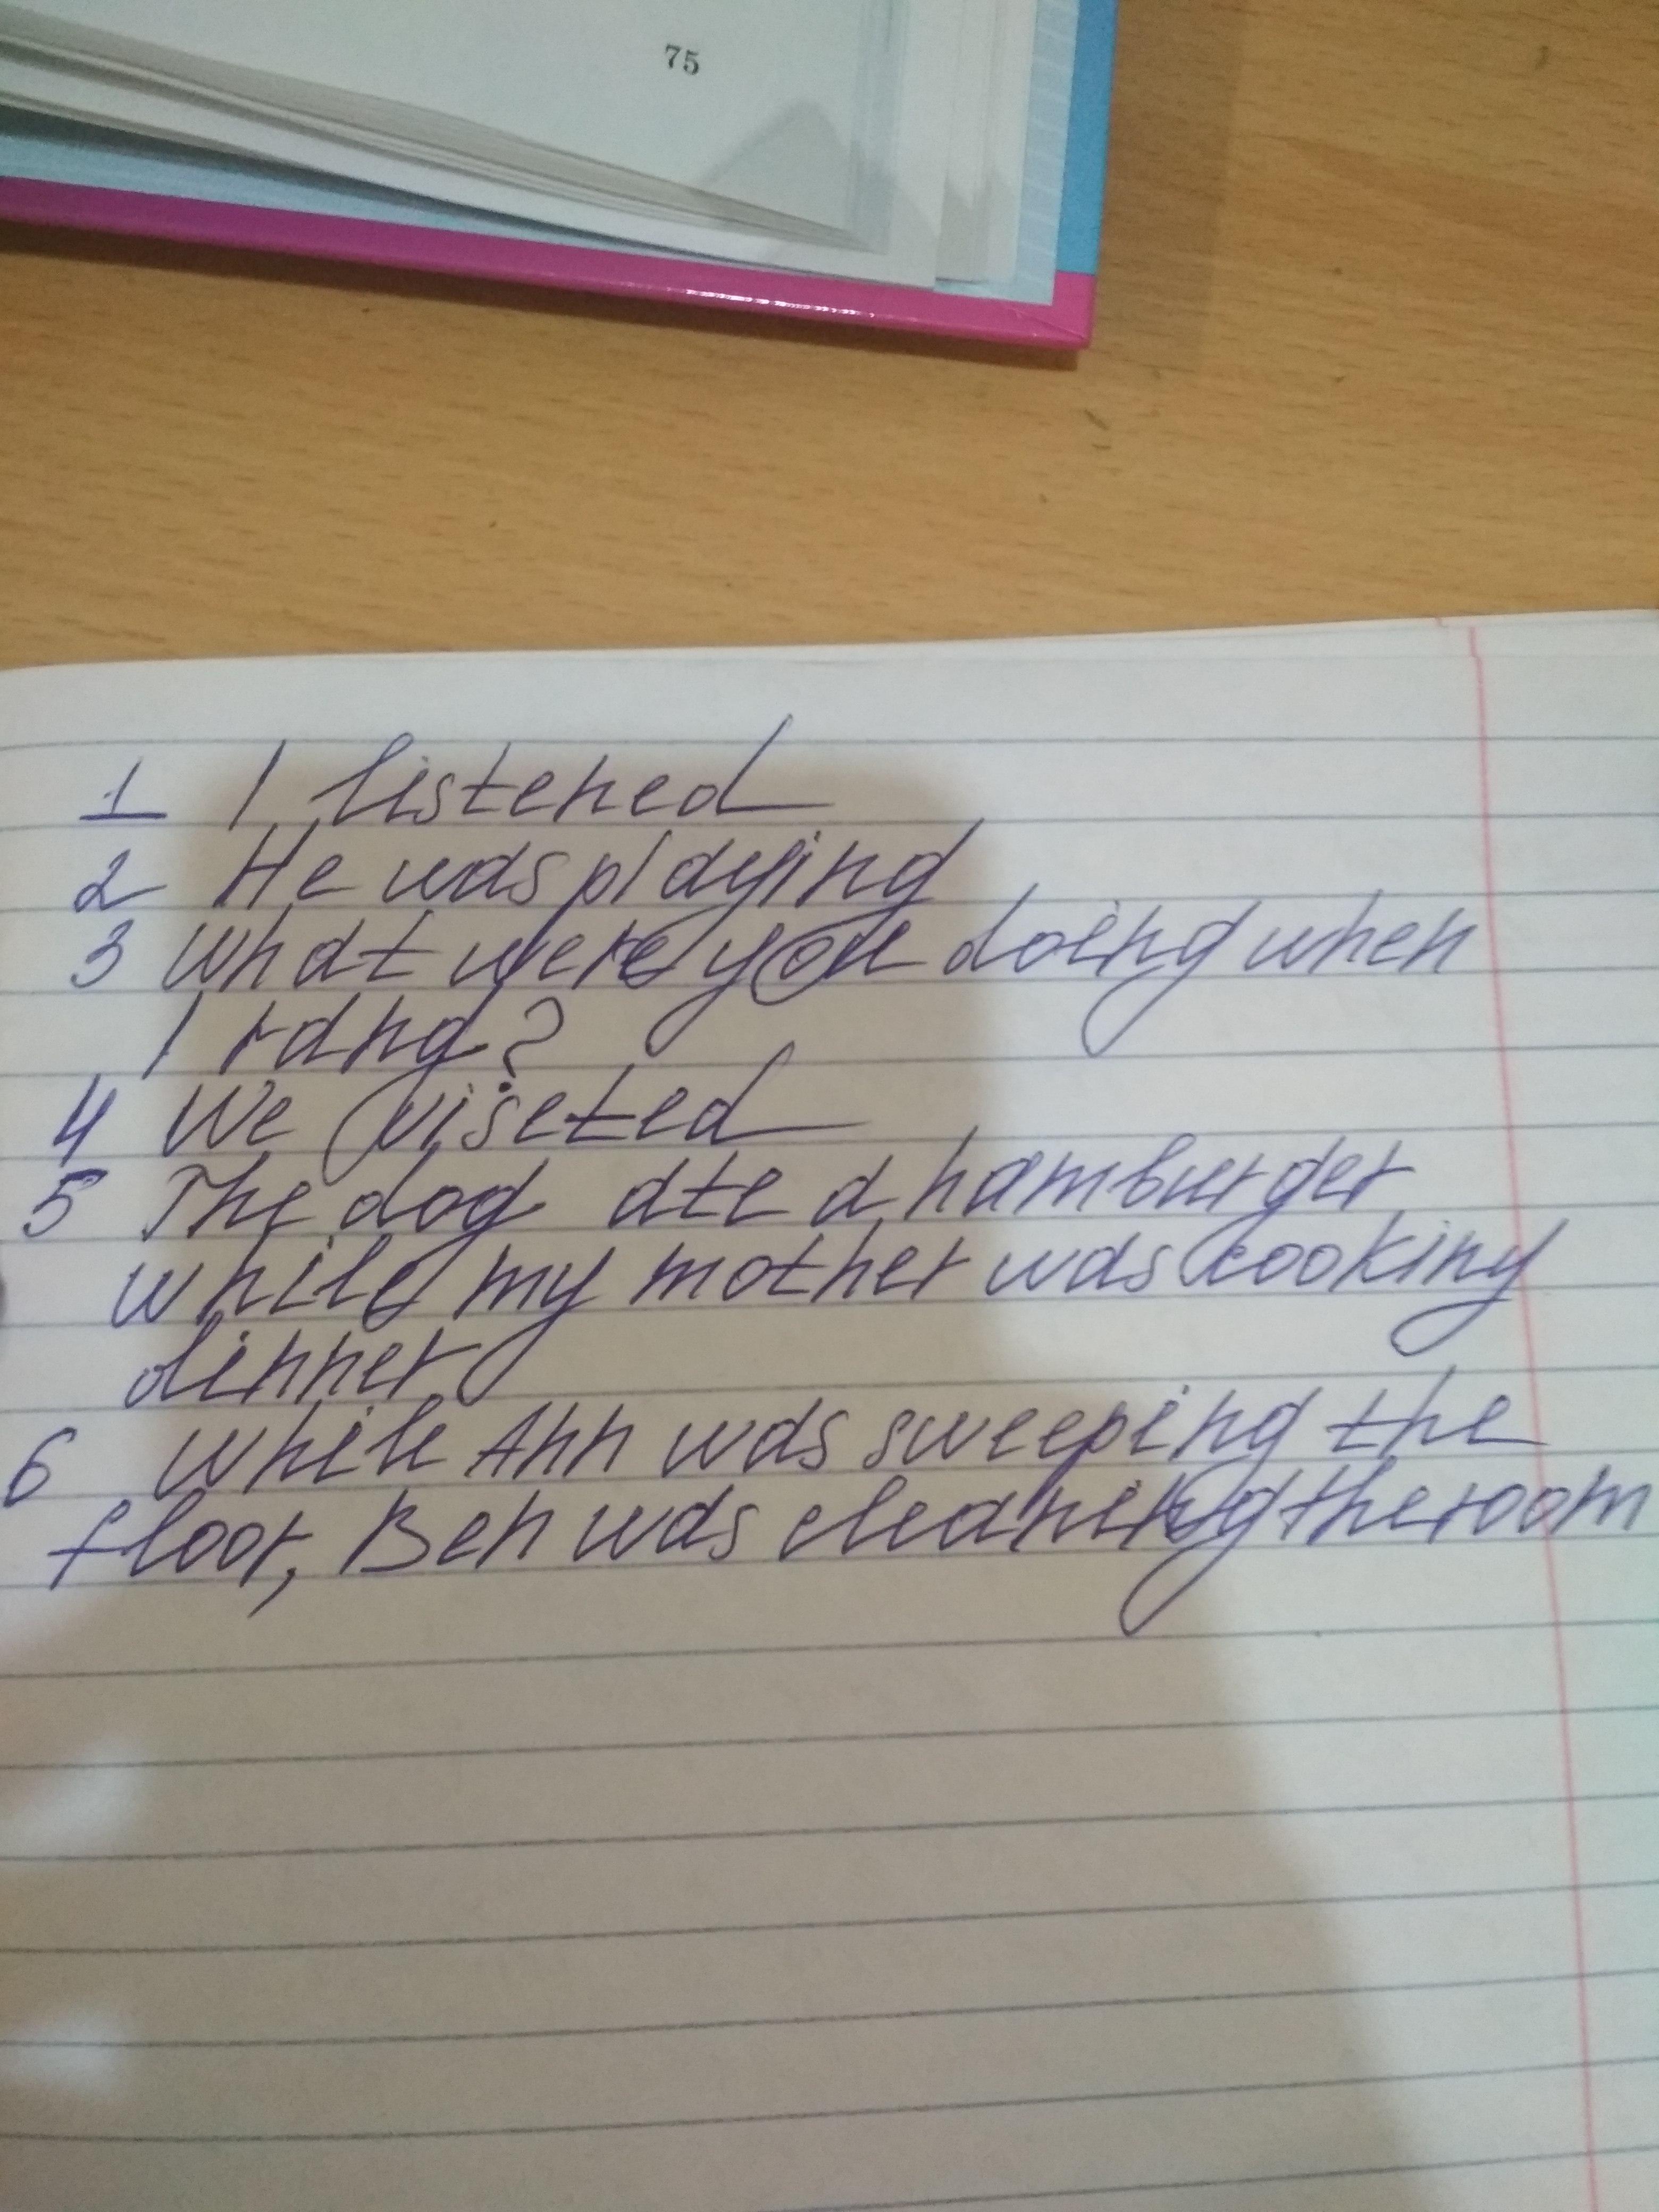 75
1 I listened
2 He was playing
3 What were you doing when
I rang?
4 We viseted
5 The dog ate a hamburger
while my mother was cooking
dinner
6 While Ann was sweeping the
floor, Ben was cleaning the room